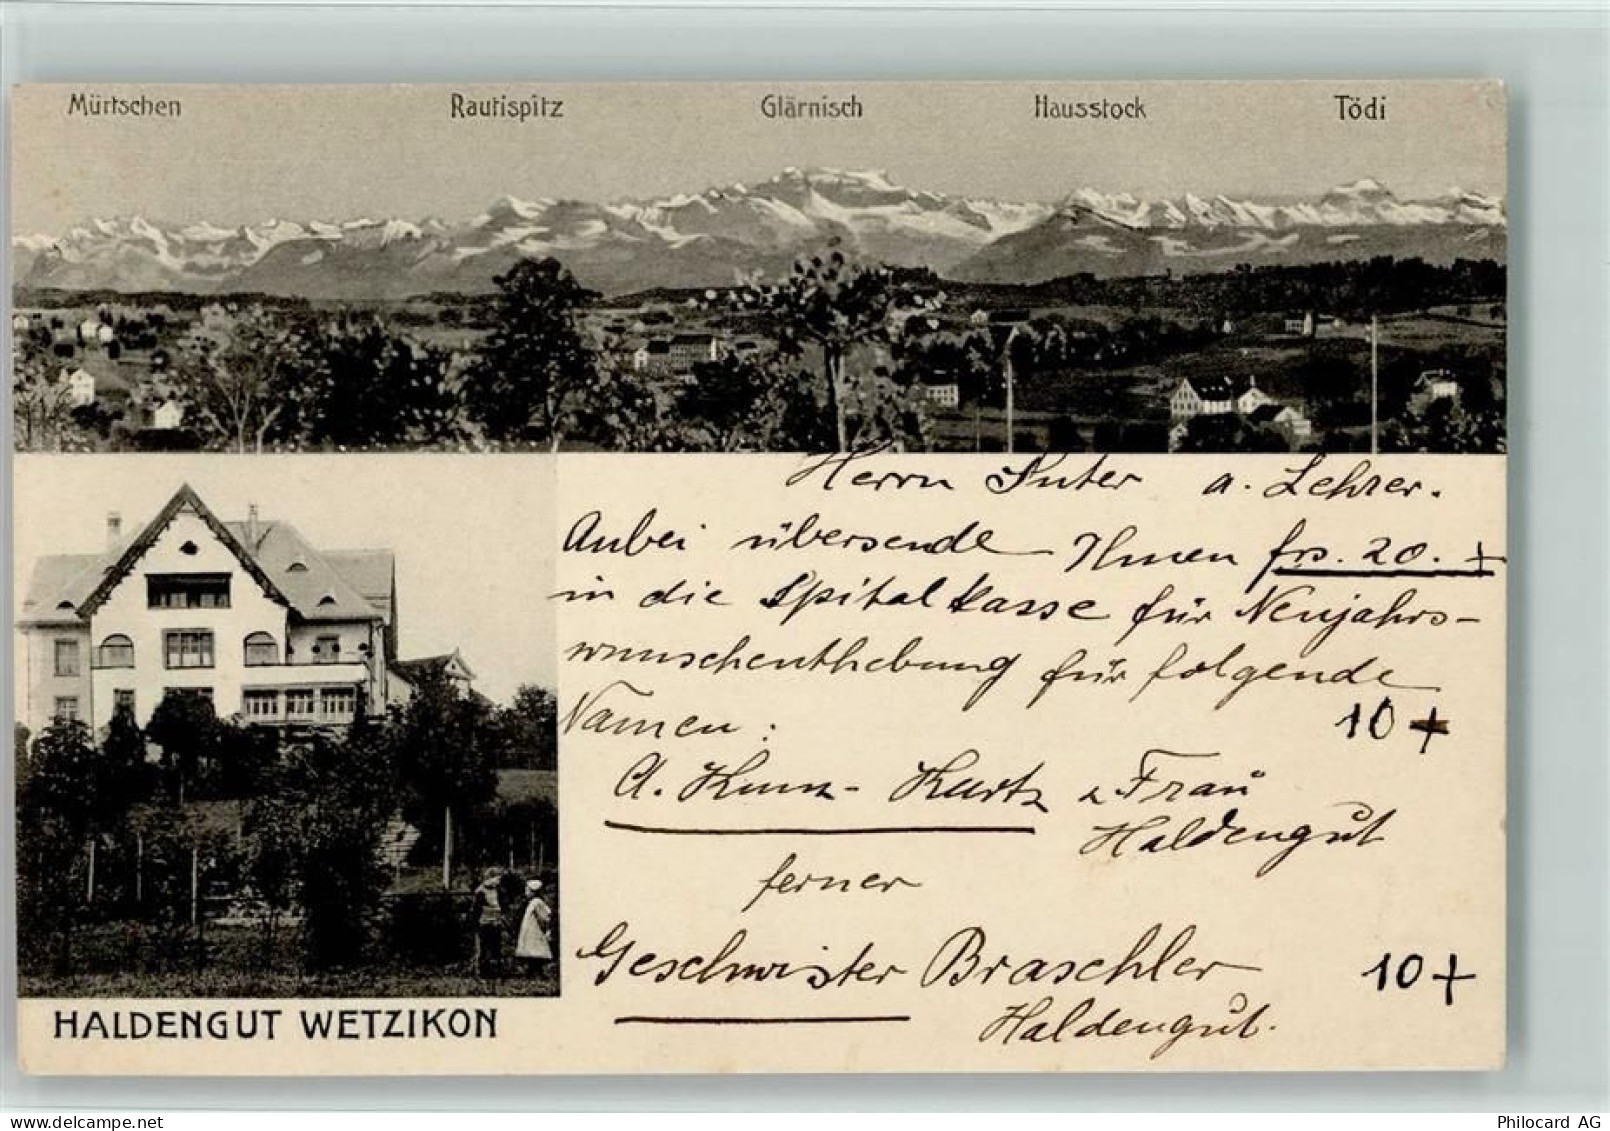 Mürtschen Rautispitz Glärnisch Hausstock Tödi
Herrn Suter a. Lehrer.
Anbei übersende Ihnen frs. 20. +
in die Spitalkasse für Neujahrs-
wunschenthebung für folgende
Namen : 10 +
A. Kunz - Kurtz & Frau
Haldengut
ferner
Geschwister Braschler 10 +
Haldengut.
HALDENGUT WETZIKON
Philocard AG